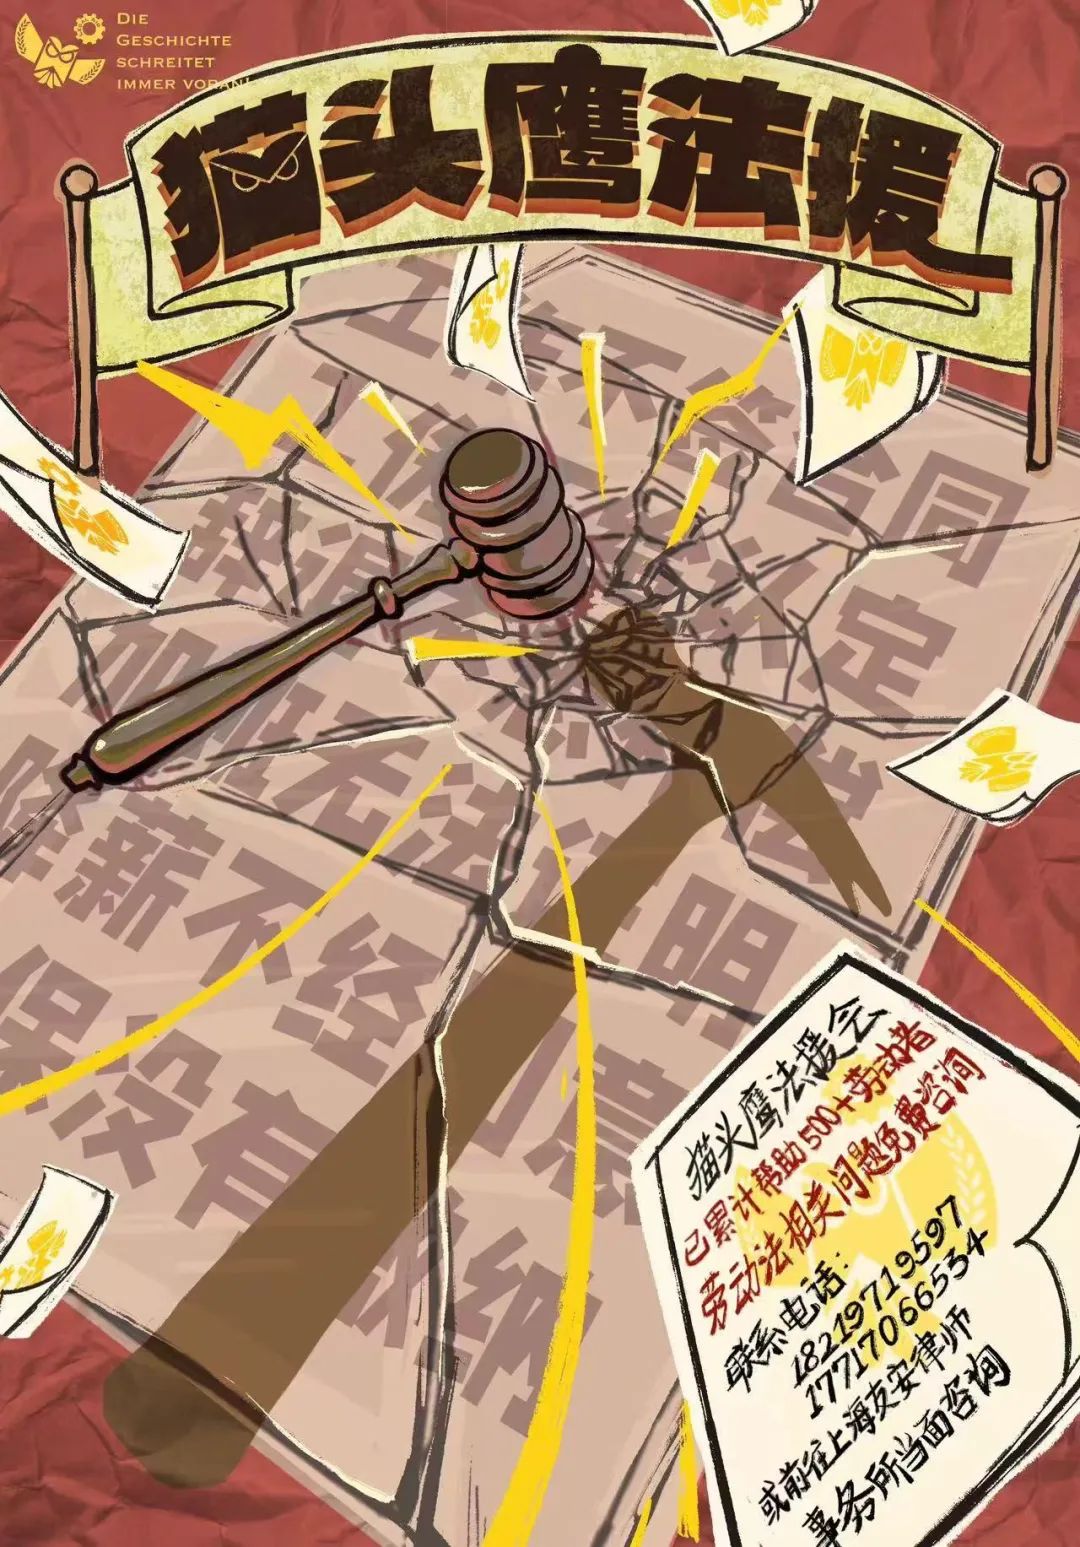 DIE
GESCHICHTE
SCHREITET
IMMER VORAN!
猫头鹰法援
工作不签合同
工伤 不 定
辞退
加班无法证明
降薪不经同意
保没有缴纳
猫头鹰法援会
已累计帮助500+劳动者
劳动法相关问题免费咨询
联系电话:
18219719597
17717066534
或前往上海友安律师
事务所当面咨询